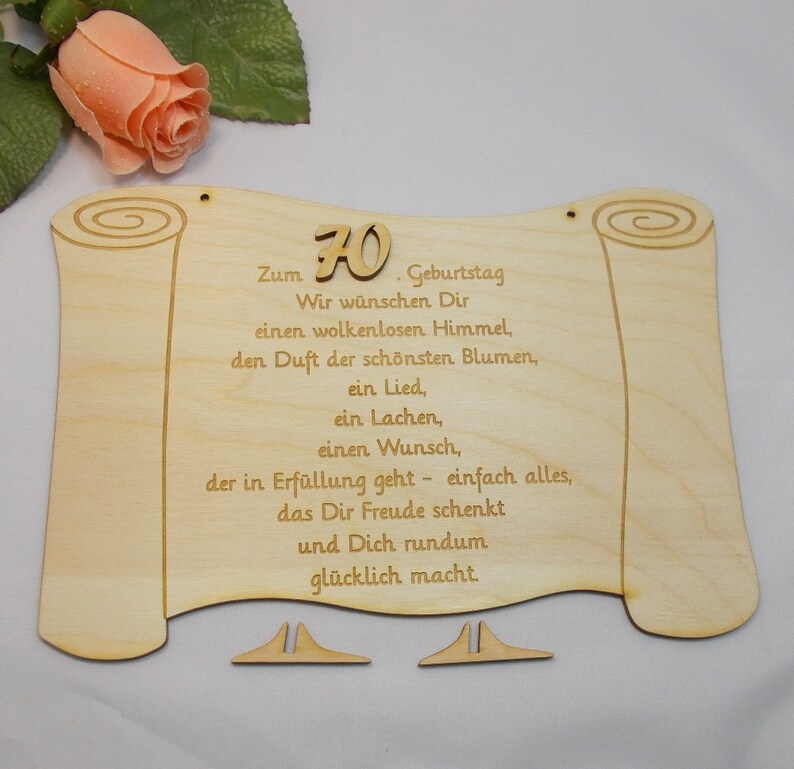 Zum 70. Geburtstag
Wir wünschen Dir
einen wolkenlosen Himmel,
den Duft der schönsten Blumen,
ein Lied,
ein Lachen,
einen Wunsch,
der in Erfüllung geht - einfach alles,
das Dir Freude schenkt
und Dich rundum
glücklich macht.